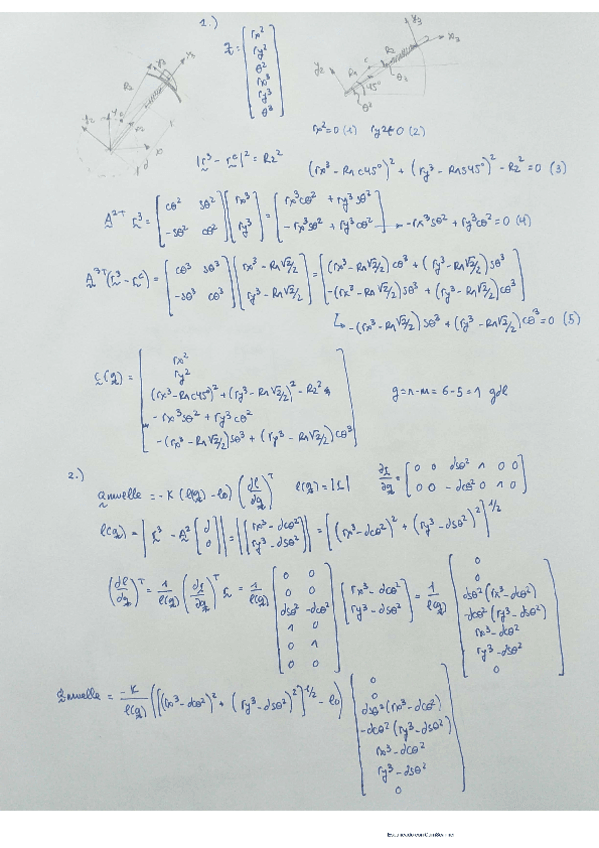 1.)
q = [rx² ry² θ² rx³ ry³ θ³]
rx²=0 (1) ry²=0 (2)
|r³ - rᶜ|² = R₂² (rx³ - R₁c45°)² + (ry³ - R₁s45°)² - R₂² = 0 (3)
A²ᵀ r³ = [cθ² sθ²; -sθ² cθ²] [rx³; ry³] = [rx³cθ² + ry³sθ²; -rx³sθ² + ry³cθ²] → -rx³sθ² + ry³cθ² = 0 (4)
A³ᵀ(r³ - rᶜ) = [cθ³ sθ³; -sθ³ cθ³] [rx³ - R₁√2/2; ry³ - R₁√2/2] = [(rx³ - R₁√2/2)cθ³ + (ry³ - R₁√2/2)sθ³; -(rx³ - R₁√2/2)sθ³ + (ry³ - R₁√2/2)cθ³]
↳ -(rx³ - R₁√2/2)sθ³ + (ry³ - R₁√2/2)cθ³ = 0 (5)
c(q) = [rx²; ry²; (rx³ - R₁c45°)² + (ry³ - R₁√2/2)² - R₂²; -rx³sθ² + ry³cθ²; -(rx³ - R₁√2/2)sθ³ + (ry³ - R₁√2/2)cθ³]
g = n - m = 6 - 5 = 1 gdl
2.)
Qmuelle = -K (l(q) - l0) (dl/dq)ᵀ l(q) = |r| ∂r/∂q = [0 0 dsθ² 1 0 0; 0 0 -dcθ² 0 1 0]
l(q) = |r³ - A² [d; 0]| = |[rx³ - dcθ²; ry³ - dsθ²]| = [(rx³ - dcθ²)² + (ry³ - dsθ²)²]^1/2
(dl/dq)ᵀ = 1/l(q) (dr/dq)ᵀ r = 1/l(q) [0 0; 0 0; dsθ² -dcθ²; 1 0; 0 1; 0 0] [rx³ - dcθ²; ry³ - dsθ²] = 1/l(q) [0; 0; dsθ²(rx³ - dcθ²) -dcθ²(ry³ - dsθ²); rx³ - dcθ²; ry³ - dsθ²; 0]
Qmuelle = -K/l(q) ([(rx³ - dcθ²)² + (ry³ - dsθ²)²]^1/2 - l0) [0; 0; dsθ²(rx³ - dcθ²) -dcθ²(ry³ - dsθ²); rx³ - dcθ²; ry³ - dsθ²; 0]
Escaneado con CamScanner